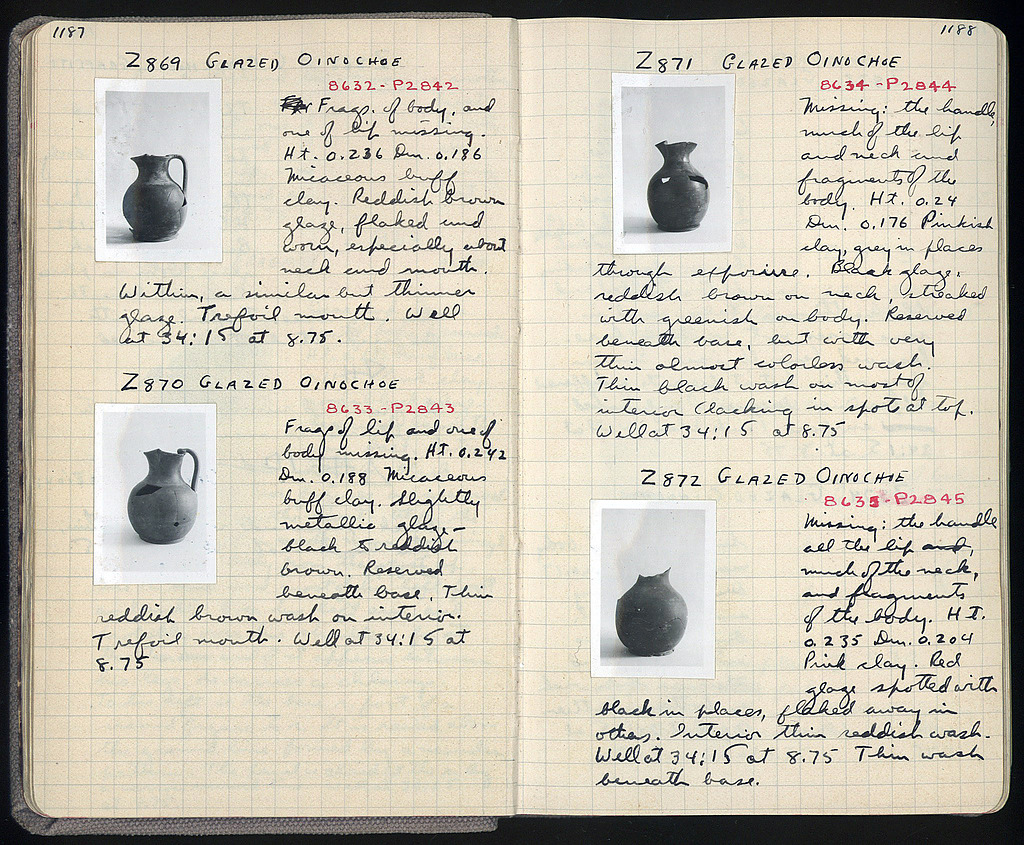 1187
Z869 GLAZED OINOCHOE
8632 - P2842
Frags. of body, and
one of lip missing.
Ht. 0.236 Dm. 0.186
Micaceous buff
clay. Reddish brown
glaze, flaked and
worn, especially about
neck and mouth.
Within, a similar but thinner
glaze. Trefoil mouth. Well
at 34:15 at 8.75.
Z870 GLAZED OINOCHOE
8633 - P2843
Frags of lip and one of
body missing. Ht. 0.242
Dm. 0.188 Micaceous
buff clay. Slightly
metallic glaze –
black to reddish
brown. Reserved
beneath base. Thin
reddish brown wash on interior.
Trefoil mouth. Well at 34:15 at
8.75
1188
Z871 GLAZED OINOCHOE
8634 - P2844
Missing: the handle,
much of the lip
and neck and
fragments of the
body. Ht. 0.24
Dm. 0.176 Pinkish
clay, grey in places
through exposure. Black glaze,
reddish brown on neck, streaked
with greenish on body. Reserved
beneath base, but with very
thin almost colorless wash.
Thin black wash on most of
interior lacking in spots at top.
Well at 34:15 at 8.75
Z872 GLAZED OINOCHOE
8635 - P2845
Missing: the handle
all the lip and,
much of the neck,
and fragments
of the body. Ht.
0.235 Dm. 0.204
Pink clay. Red
glaze spotted with
black in places, flaked away in
others. Interior thin reddish wash.
Well at 34:15 at 8.75 Thin wash
beneath base.